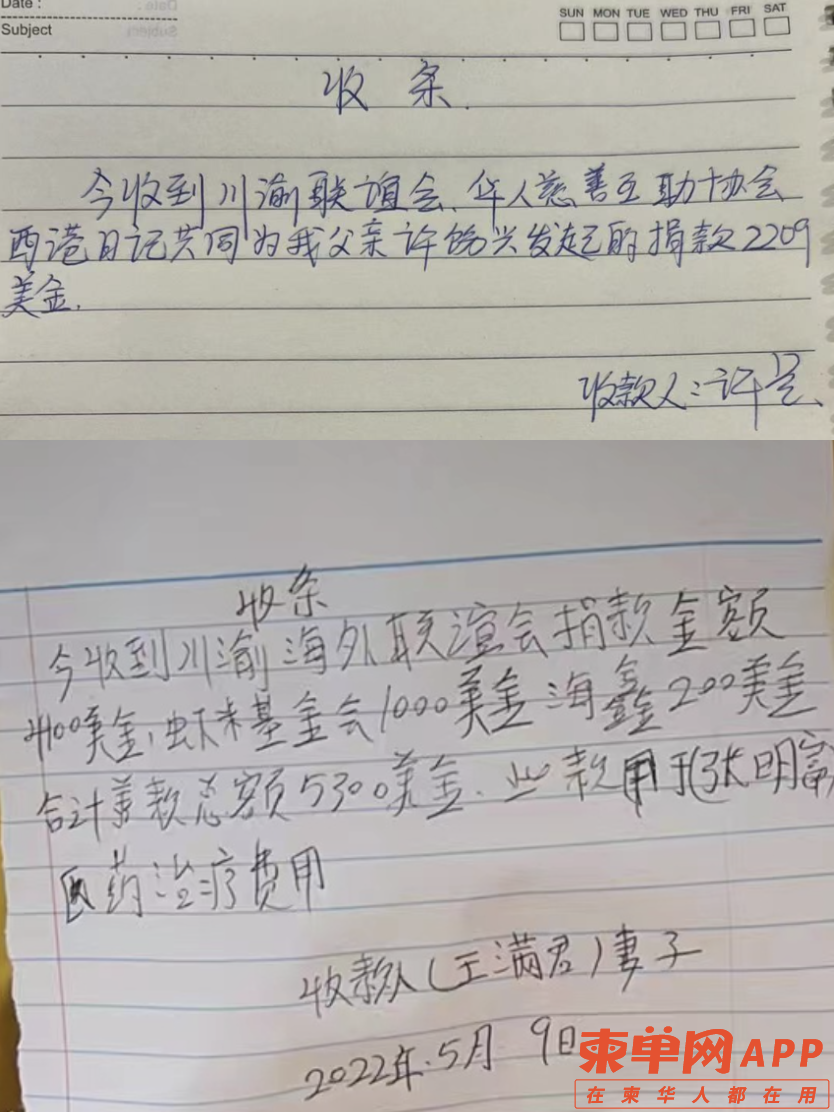 Date :
Subject
SUN MON TUE WED THU FRI SAT
收 条.
今收到川渝联谊会、华人慈善互助协会
西港日记共同为我父亲许 兴发起的捐款2209
美金.
收款人:许
收条
今收到川渝海外联谊会捐款金额
4100美金,虾米基金会1000美金海鑫200美金
合计善款总额5300美金. 此款用于(张明富)
医药治疗费用
收款人(王满君)妻子
2022年.5月 9日
柬单网APP
在柬华人都在用